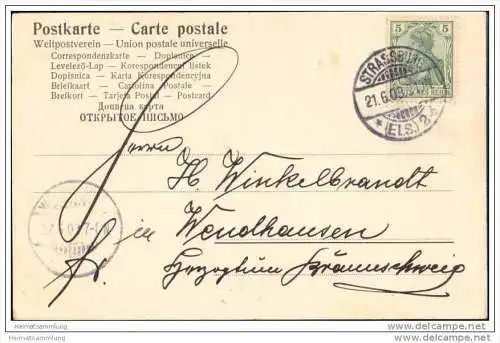 Postkarte – Carte postale
Weltpostverein – Union postale universelle
Correspondenzkarte – Dopisnice –
Levelező-Lap – Korespondenční lístek
Dopisnica – Karta Korespondencyjna
Briefkaart – Cartolina Postale –
Brefkort – Tarjeta Postal – Postcard
Дописна карта
ОТКРЫТОЕ ПИСЬМО
5 5
STRASSBURG
21.6.09.
* (ELS.) 2
Herrn
H. Winkelbrandt
in Wendhausen
Fr. Herzogtum Braunschweig
Heimatsammlung
Heimatsammlung.com
www.delcampe.net